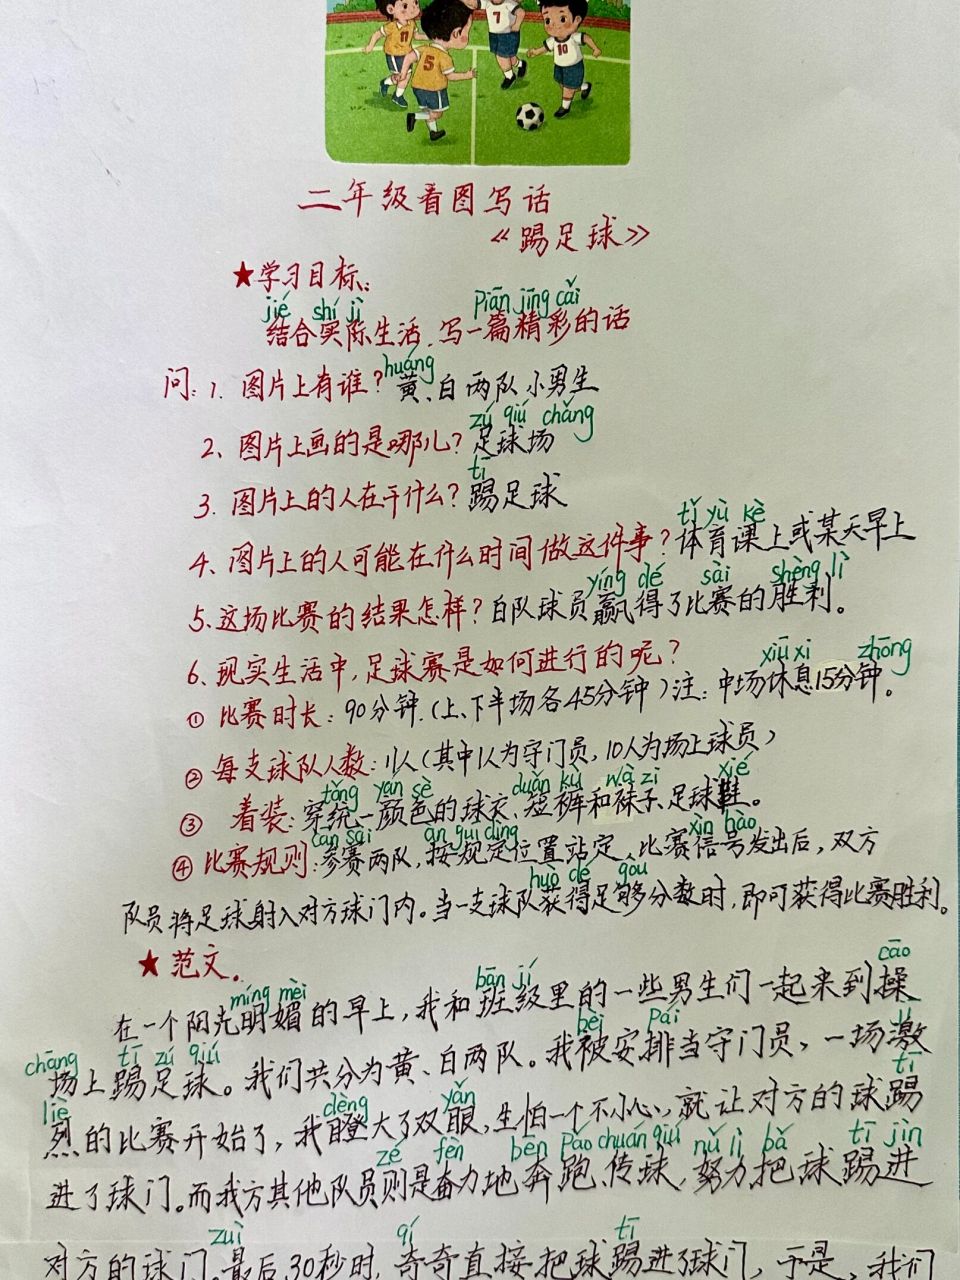 11
5
7
10
二年级看图写话
《踢足球》
★学习目标：
jié shí jì piān jīng cǎi
结合实际生活，写一篇精彩的话
huáng
问：1. 图片上有谁？黄、白两队小男生
zú qiú chǎng
2、图片上画的是哪儿？足球场
tī
3. 图片上的人在干什么？踢足球
tǐ yù kè
4、图片上的人可能在什么时间做这件事？体育课上或某天早上
yíng dé sài shèng lì
5、这场比赛的结果怎样？白队球员赢得了比赛的胜利。
6、现实生活中，足球赛是如何进行的呢？
xiū xi zhōng
① 比赛时长：90分钟.（上、下半场各45分钟）注：中场休息15分钟。
② 每支球队人数：11人（其中1人为守门员，10人为场上球员）
tǒng yan sè duǎn kù wà zi xié
③ 着装：穿统一颜色的球衣、短裤和袜子、足球鞋。
can sài àn guī dìng xìn hào
④ 比赛规则：参赛两队，按规定位置站定、比赛信号发出后，双方
huò dé gòu
队员将足球射入对方球门内。当一支球队获得足够分数时，即可获得比赛胜利。
★范文。
míng mèi bān jí cāo
在一个阳光明媚的早上，我和班级里的一些男生们一起来到操
chǎng tī zú qiú bèi pái
场上踢足球。我们共分为黄、白两队。我被安排当守门员，一场激
liè dèng yǎn tī
烈的比赛开始了，我瞪大了双眼，生怕一个不小心，就让对方的球踢
zé fèn bēn pǎo chuán qiú nǔ lì bǎ tī jìn
进了球门。而我方其他队员则是奋力地奔跑、传球，努力把球踢进
zuì qí tī
对方的球门。最后30秒时，奇奇直接把球踢进了球门，于是，我们